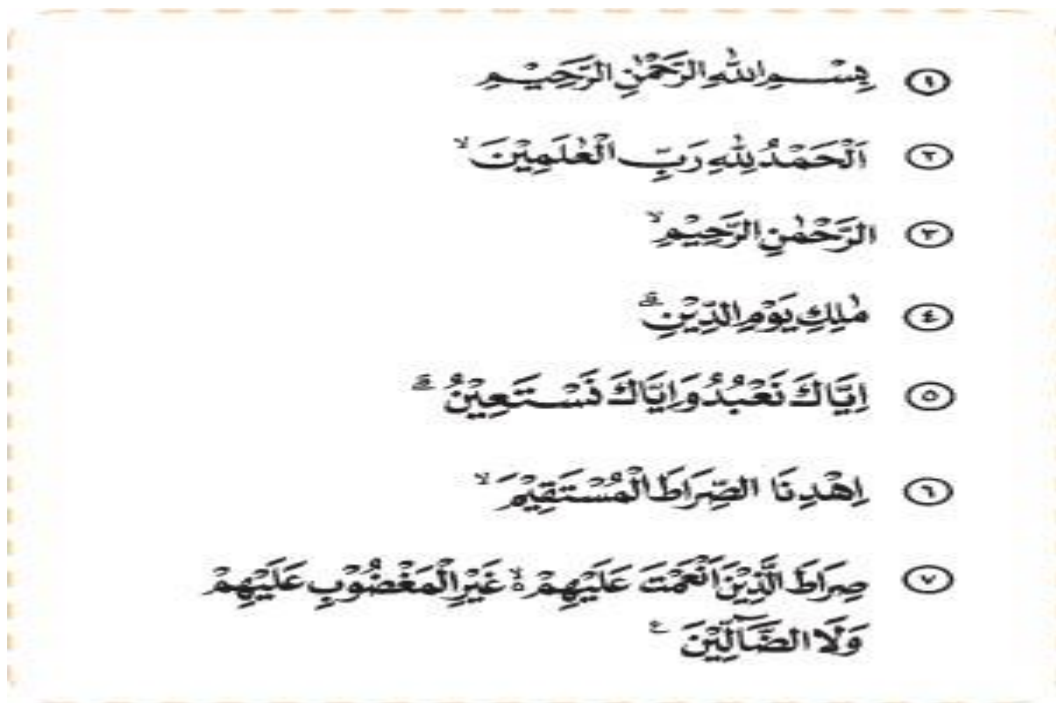 ١ بِسْمِ اللّٰهِ الرَّحْمٰنِ الرَّحِيْمِ
٢ اَلْحَمْدُ لِلّٰهِ رَبِّ الْعٰلَمِيْنَ ۙ
٣ الرَّحْمٰنِ الرَّحِيْمِ ۙ
٤ مٰلِكِ يَوْمِ الدِّيْنِ ۗ
٥ اِيَّاكَ نَعْبُدُ وَاِيَّاكَ نَسْتَعِيْنُ ۗ
٦ اِهْدِنَا الصِّرَاطَ الْمُسْتَقِيْمَ ۙ
٧ صِرَاطَ الَّذِيْنَ اَنْعَمْتَ عَلَيْهِمْ ەۙ غَيْرِ الْمَغْضُوْبِ عَلَيْهِمْ
وَلَا الضَّآلِّيْنَ ࣖ